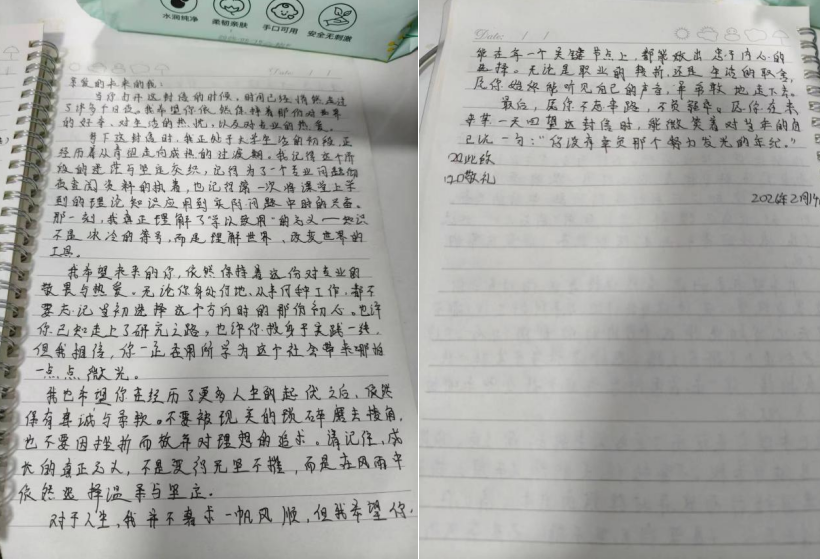 水润纯净 柔韧亲肤 手口可用 安全无刺激
亲爱的未来的我：
当你打开这封信的时候，时间已经悄然走过
了许多个日夜。我希望你依然保持着那份对世界
的好奇、对生活的热忱，以及对专业的热爱。
写下这封信时，我正处于大学生活的初段，正
经历着从青涩走向成熟的过渡期。我记得这个阶
段的迷茫与坚定交织，记得为了一个专业问题彻
夜查阅资料的执着，也记得第一次将课堂上学
到的理论知识应用到实际问题中时的兴奋。
那一刻，我真正理解了“学以致用”的意义——知识
不是冰冷的符号，而是理解世界、改变世界的
工具。
我希望未来的你，依然保持着这份对专业的
敬畏与热爱。无论你身处何地、从事何种工作，都不
要忘记当初选择这个方向时的那份初心。也许
你已知走上了研究之路，也许你投身于实践一线，
但我相信，你一定在用所学为这个社会带来哪怕
一点点微光。
我也希望你在经历了更多人生的起伏之后，依然
保有真诚与柔软。不要被现实的琐碎磨去棱角，
也不要因挫折而放弃对理想的追求。请记住，成
长的真正意义，不是变得无坚不摧，而是在风雨中
依然选择温柔与坚定。
对于人生，我并不奢求一帆风顺，但我希望你，
Date: / /
能在每一个关键节点上，都能做出忠于内心的
选择。无论是职业的转折，还是生活的取舍，
愿你始终能听见自己的声音，并勇敢地走下去。
最后，愿你不忘来路，不负韶华。愿你在未
来某一天回望这封信时，能微笑着对当年的自
己说一句：“你没有辜负那个努力发光的年纪。”
此致
敬礼
2026年2月14